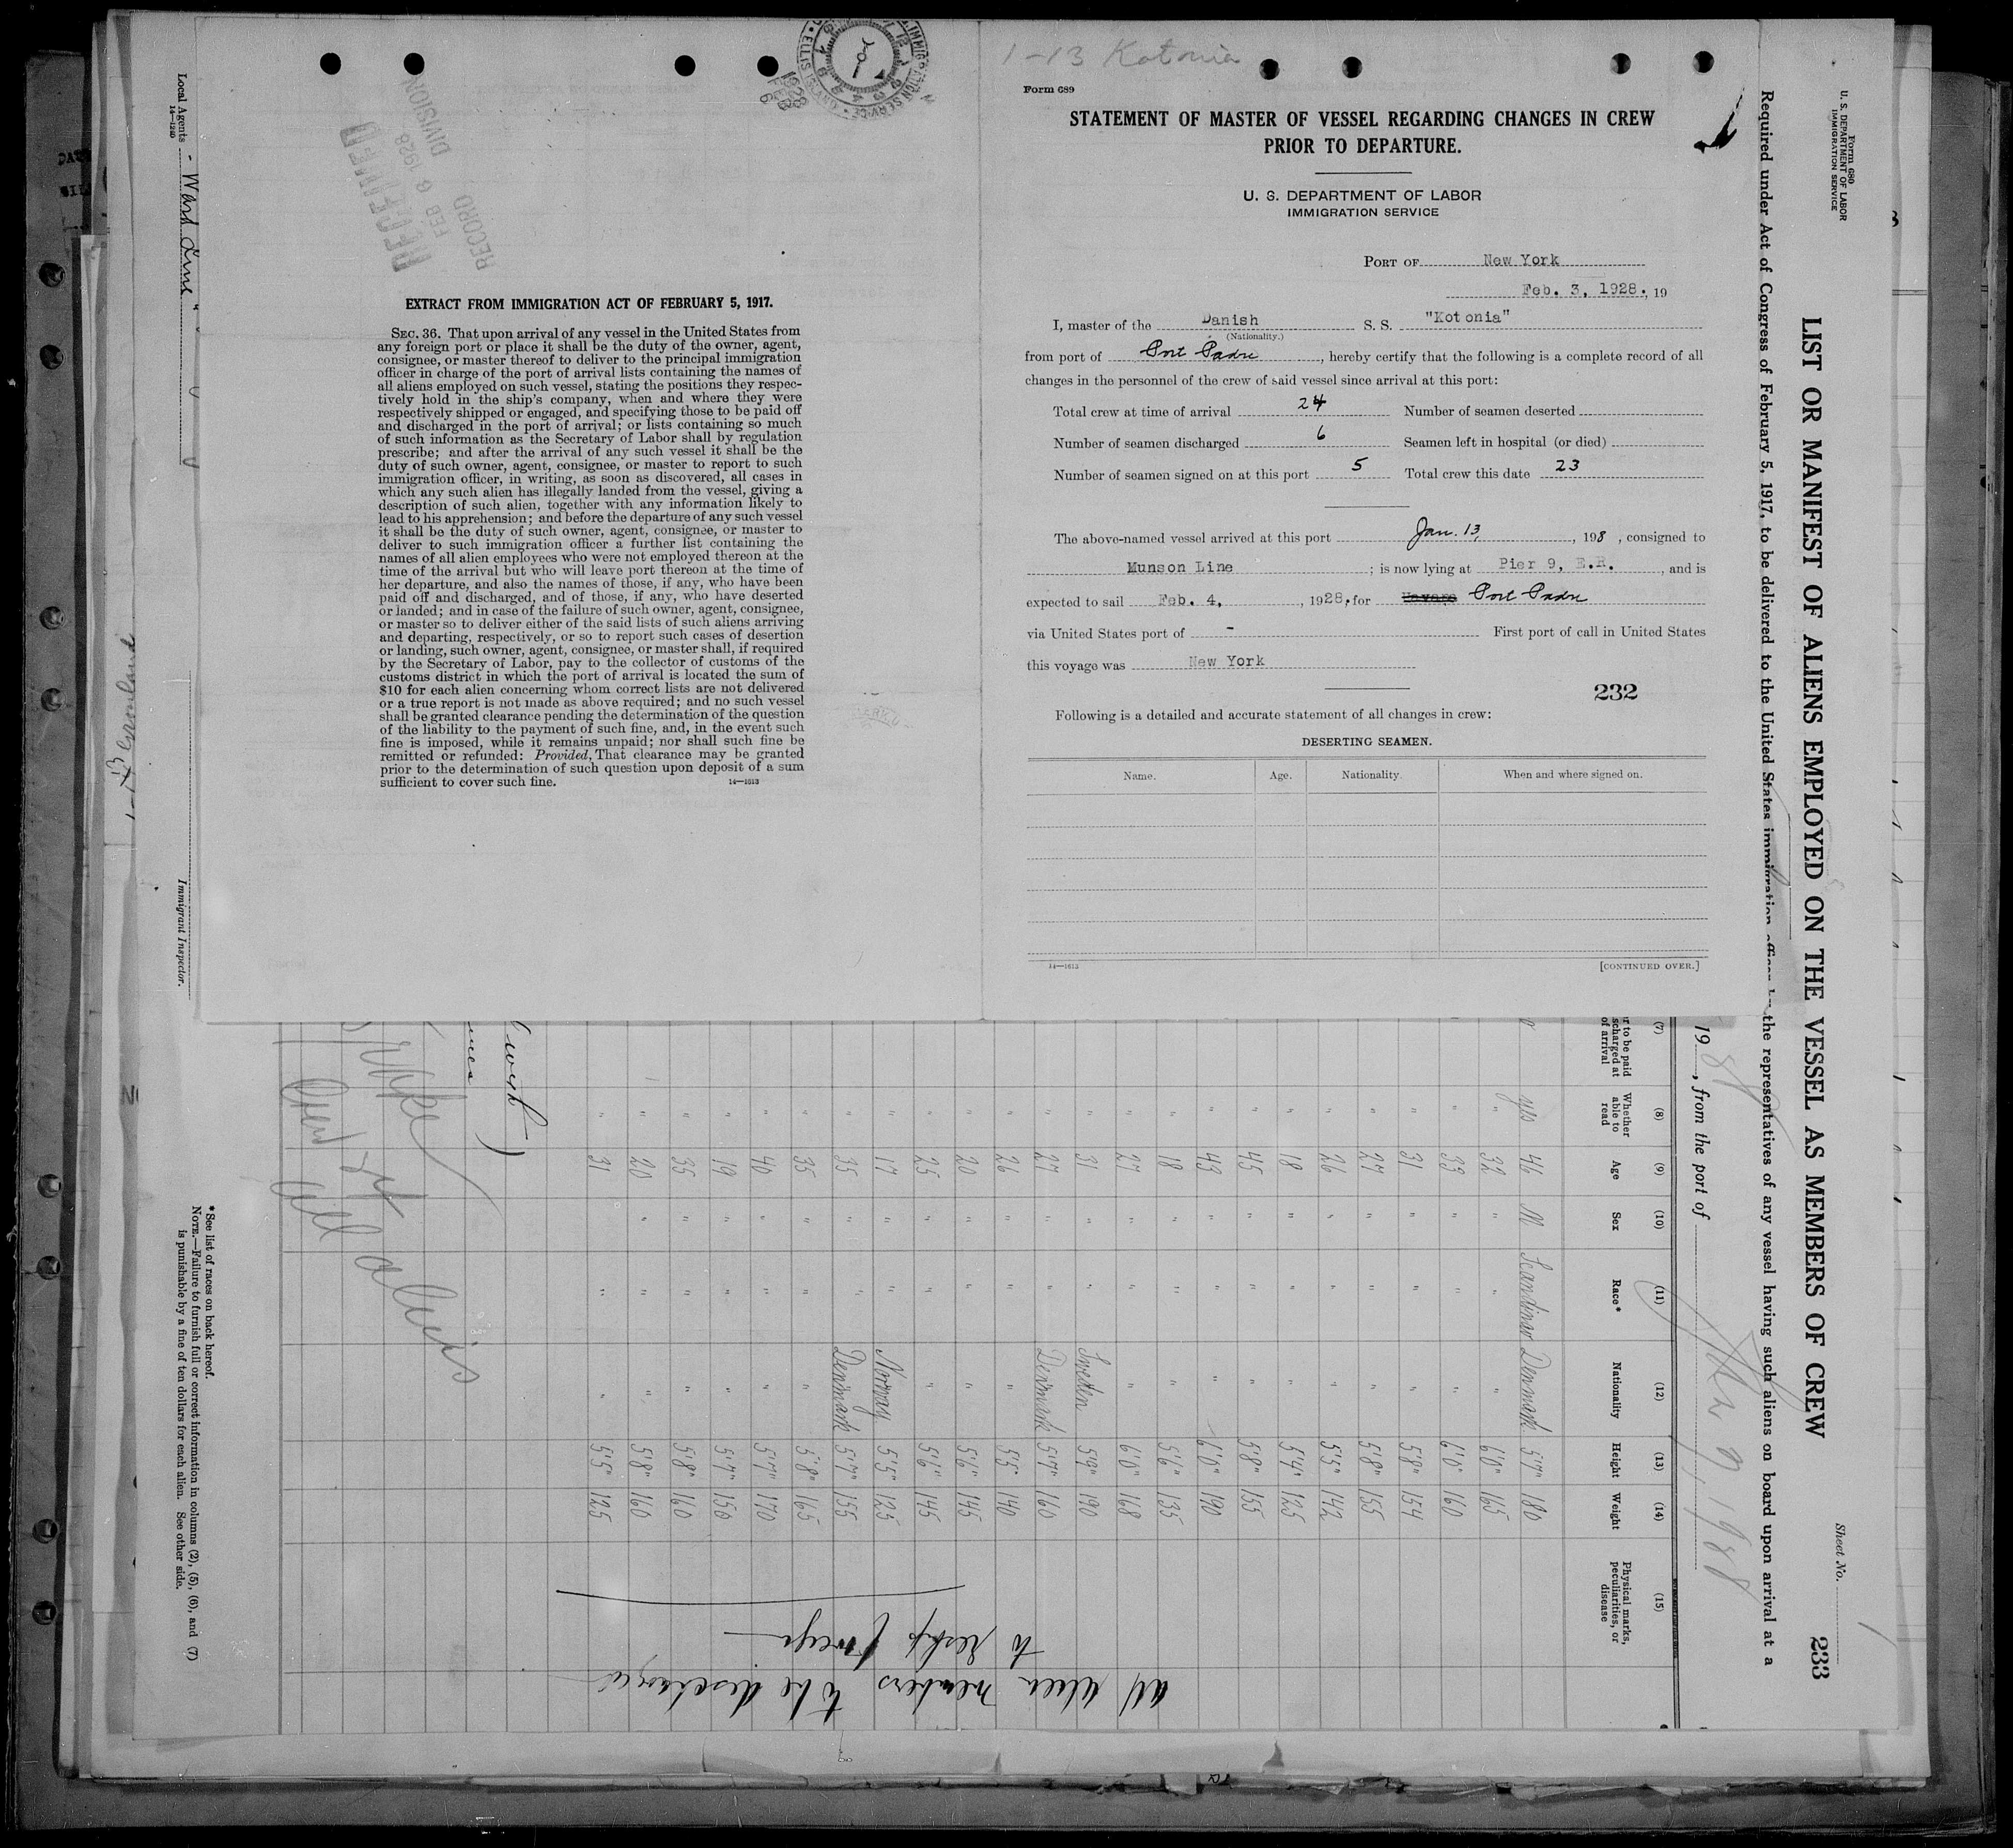 1-13 Kotonia
Form 689
STATEMENT OF MASTER OF VESSEL REGARDING CHANGES IN CREW
PRIOR TO DEPARTURE.
U. S. DEPARTMENT OF LABOR
IMMIGRATION SERVICE
PORT OF New York
Feb. 3, 1928. , 19
I, master of the Danish S. S. "Kotonia"
(Nationality.)
from port of Port Padre , hereby certify that the following is a complete record of all
changes in the personnel of the crew of said vessel since arrival at this port:
Total crew at time of arrival 24 Number of seamen deserted
Number of seamen discharged 6 Seamen left in hospital (or died)
Number of seamen signed on at this port 5 Total crew this date 23
The above-named vessel arrived at this port Jan. 13, , 198 , consigned to
Munson Line ; is now lying at Pier 9, E.R. , and is
expected to sail Feb. 4, , 1928, for Port Padre
via United States port of - First port of call in United States
this voyage was New York
232
Following is a detailed and accurate statement of all changes in crew:
DESERTING SEAMEN.
Name. Age. Nationality. When and where signed on.
14—1613 [CONTINUED OVER.]
IMMIGRATION SERVICE
ELLIS ISLAND
1928 FEB 6
RECEIVED
FEB 6 1928
RECORD DIVISION
EXTRACT FROM IMMIGRATION ACT OF FEBRUARY 5, 1917.
SEC. 36. That upon arrival of any vessel in the United States from
any foreign port or place it shall be the duty of the owner, agent,
consignee, or master thereof to deliver to the principal immigration
officer in charge of the port of arrival lists containing the names of
all aliens employed on such vessel, stating the positions they respec-
tively hold in the ship's company, when and where they were
respectively shipped or engaged, and specifying those to be paid off
and discharged in the port of arrival; or lists containing so much
of such information as the Secretary of Labor shall by regulation
prescribe; and after the arrival of any such vessel it shall be the
duty of such owner, agent, consignee, or master to report to such
immigration officer, in writing, as soon as discovered, all cases in
which any such alien has illegally landed from the vessel, giving a
description of such alien, together with any information likely to
lead to his apprehension; and before the departure of any such vessel
it shall be the duty of such owner, agent, consignee, or master to
deliver to such immigration officer a further list containing the
names of all alien employees who were not employed thereon at the
time of the arrival but who will leave port thereon at the time of
her departure, and also the names of those, if any, who have been
paid off and discharged, and of those, if any, who have deserted
or landed; and in case of the failure of such owner, agent, consignee,
or master so to deliver either of the said lists of such aliens arriving
and departing, respectively, or so to report such cases of desertion
or landing, such owner, agent, consignee, or master shall, if required
by the Secretary of Labor, pay to the collector of customs of the
customs district in which the port of arrival is located the sum of
$10 for each alien concerning whom correct lists are not delivered
or a true report is not made as above required; and no such vessel
shall be granted clearance pending the determination of the question
of the liability to the payment of such fine, and, in the event such
fine is imposed, while it remains unpaid; nor shall such fine be
remitted or refunded: Provided, That clearance may be granted
prior to the determination of such question upon deposit of a sum
sufficient to cover such fine. 14—1613
Form 680
U. S. DEPARTMENT OF LABOR
IMMIGRATION SERVICE
Sheet No.
233
LIST OR MANIFEST OF ALIENS EMPLOYED ON THE VESSEL AS MEMBERS OF CREW
Required under Act of Congress of February 5, 1917, to be delivered to the United States immigration officer by the representatives of any vessel having such aliens on board upon arrival at a
19 , from the port of
(7) (8) (9) (10) (11) (12) (13) (14) (15)
r to be paid scharged at of arrival Whether able to read Age Sex Race* Nationality Height Weight Physical marks, peculiarities, or disease
yes 46 M Scandinav Denmark 5'7" 180
" 32 " " " 6'0" 165
" 33 " " " 6'0" 160
" 31 " " " 5'8" 154
" 27 " " " 5'8" 155
" 26 " " " 5'5" 142
" 18 " " " 5'4" 125
" 45 " " " 5'8" 155
" 43 " " " 6'0" 190
" 18 " " " 5'6" 135
" 27 " " " 6'0" 168
" 31 " " Sweden 5'9" 190
" 27 " " Denmark 5'7" 160
" 26 " " " 5'5" 140
" 20 " " " 5'6" 145
" 25 " " " 5'6" 145
" 17 " " Norway 5'5" 125
" 35 " " Denmark 5'7" 155
" 35 " " " 5'8" 165
" 40 " " " 5'7" 170
" 19 " " " 5'7" 150
" 35 " " " 5'8" 160
" 20 " " " 5'8" 160
" 31 " " " 5'5" 125
all alien members to be discharged
to reship foreign
Local Agents - Ward Line
14—1240
Immigrant Inspector.
* See list of races on back hereof.
NOTE.—Failure to furnish full or correct information in columns (2), (5), (6), and (7)
is punishable by a fine of ten dollars for each alien. See other side.